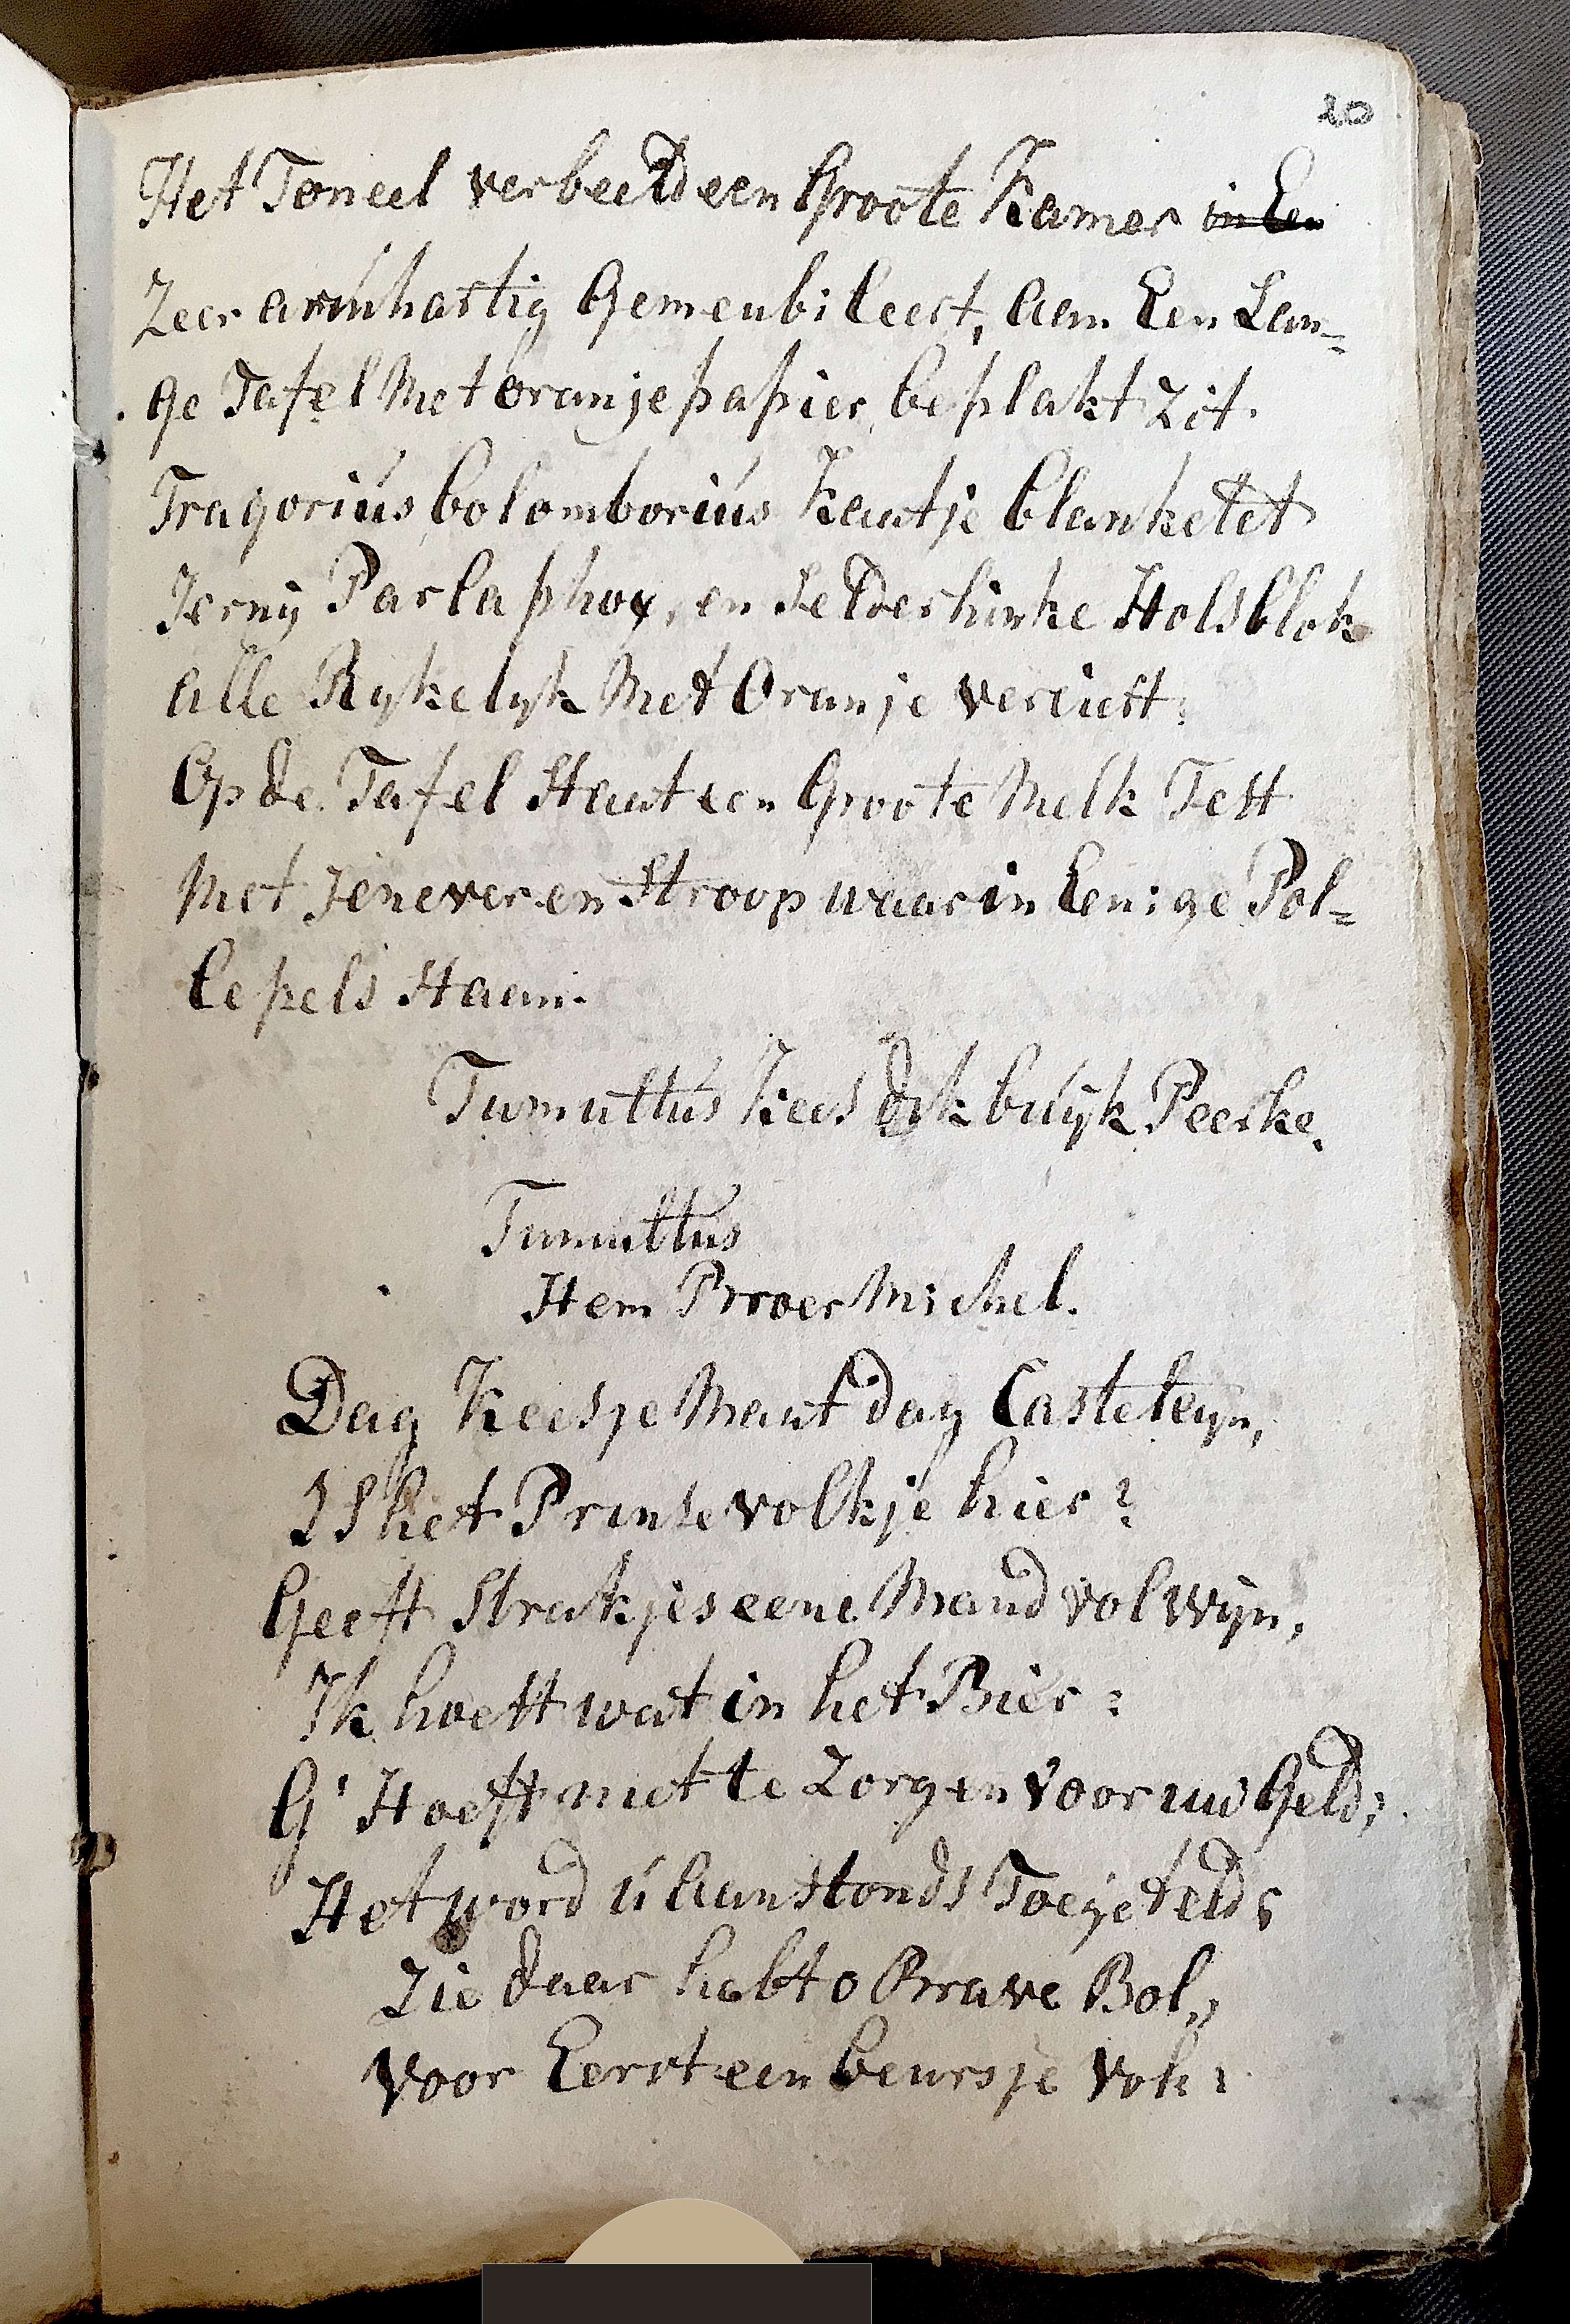 20
Het Toneel verbeeld een Groote Kamer in Een
Zeer armhartig Gemeubileert, Aan Een Lan=
ge Tafel Met oranje papier beplakt Zit.
Tragorius bolomborius Kaatje blanketet
Jerny Parlaphoy, en Selderhinke Holsblok
alle Rykelyk Met Oranje verciert:
Op de Tafel Staat een Groote Melk Test
Met Jenever en Stroop waar in Eenige Pol=
lepels Staan.
Tumultus Kees dikbuijk Peerke.
Tumultus
Stem Proer Michel.
Dag Keesje Maat dag Casteleyn,
IS het Prinse volkje hier?
Geeft Strakjes eene Mand vol Wijn,
Ik hoest wat in het Bier:
G' Hoeft niet te Zorgen voor uw Geld;
Het word ú aanstonds Toegeteld;
Zie daar hebt o Brave Bol,,
voor Eerst een beursje vol: